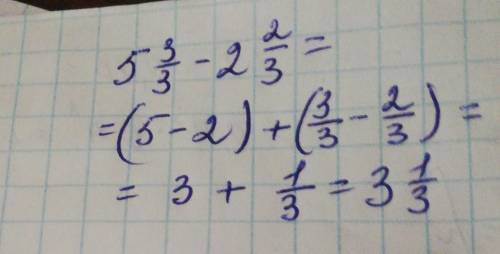 5 3/3 - 2 2/3 =
= (5 - 2) + (3/3 - 2/3) =
= 3 + 1/3 = 3 1/3